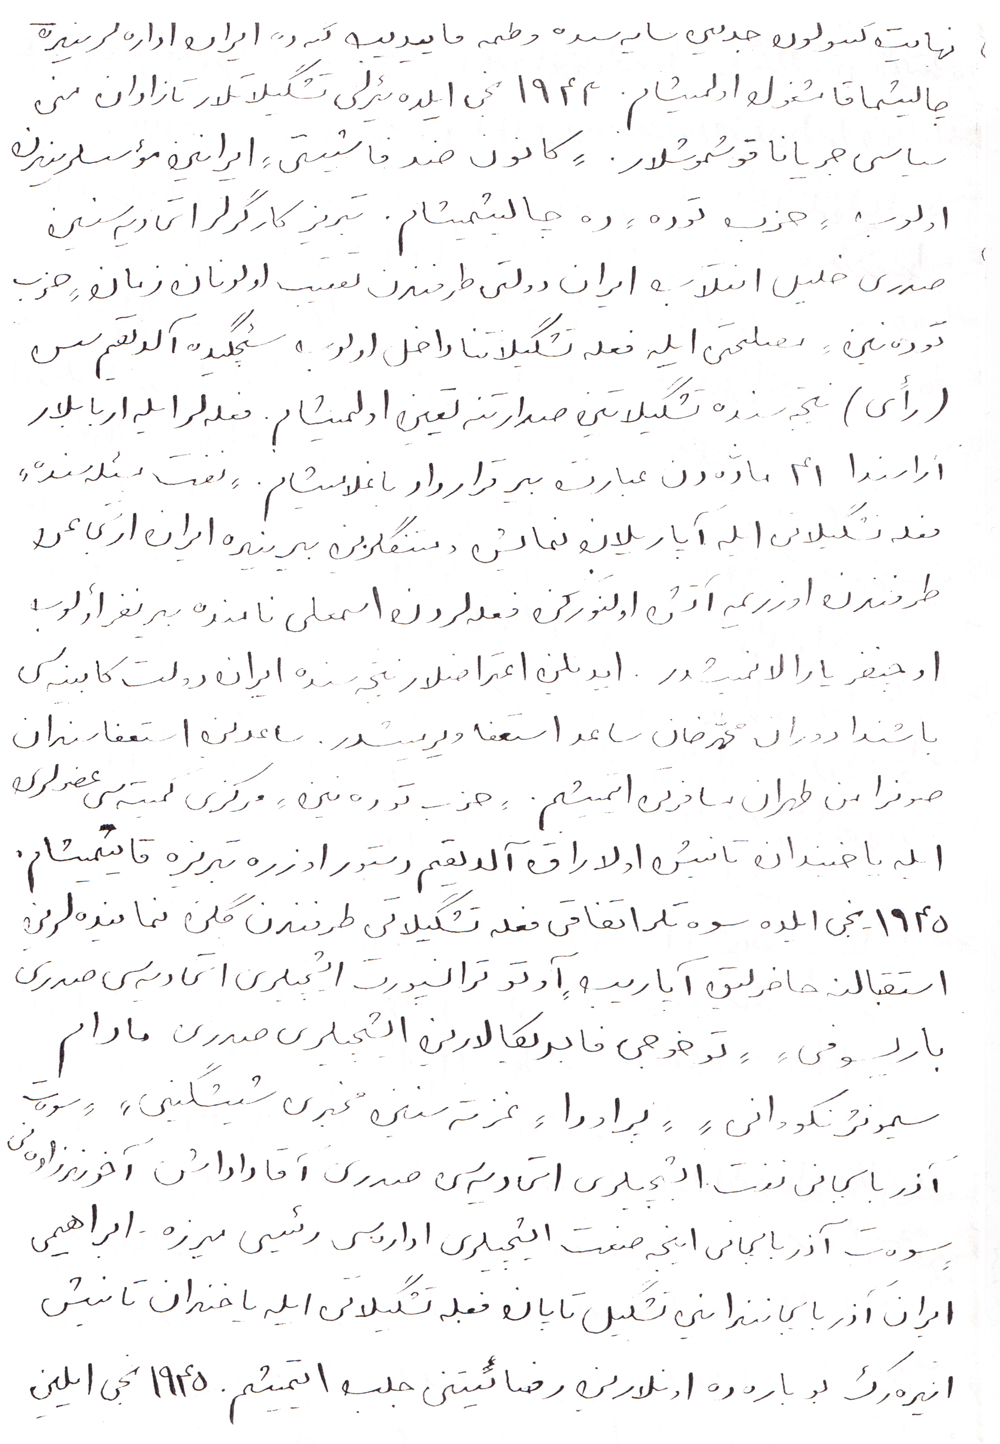 نهایت کنسولون جدیدی سایه‌سنده وظیفه تاپیدیب گه‌ده ایران اداره‌لرینده
چالیشماقا مشغول اولمیشام. ۱۹۴۴ نجی ایلده بیزلی تشگیلاتلار تازادان منی
سیاسی جریانا قوشموشلار. «کانون ضد فاشیستی» ایرانین مؤسسلریندن
اولوب «حزب توده» ده چالیشمیشام. تبریز کارگرلر اتحادیه‌سنین
صدری خلیل انقلاب ایران دولتی طرفندن تعقیب اولونان زمان «حزب
توده‌نین» مصلحتی ایله فعله تشگیلاتنا داخل اولوب سئچگیده آلدیقیم سس
(رأی) نتیجه‌سنده تشگیلاتین صدارتنه تعیین اولمیشام. فعله‌لر ایله اربابلار
آراسندا ۴۱ ماده‌دن عبارت بیر قرارداد باغلامیشام. «نفت مسئله‌سنده»
فعله تشگیلاتی ایله آپاریلان نمایش و میتنگلرین بیرینده ایران ارتجاعی
طرفندن اوزریمیزه آتش اولنورکن فعله‌لردن اسمعلی نامنده بیر نفر اؤلوب
اوچ نفر یارالانمیشدر. ایدیلن اعتراضلار نتیجه‌سنده ایران دولت کابینه‌سی
باشندا دوران محمدخان ساعد استعفا ویرمیشدر. ساعدین استعفاسندان
صونرا من طهران مسافرتی ائتمیشم. «حزب توده‌نین» مرکزی کمیته‌سی عضولری
ایله یاخیندان تانیش اولاراق آلدیقیم دستور اوزره تبریزه قایتمیشام.
۱۹۴۵-نجی ایلده سوه‌تلر اتفاقی فعله تشگیلاتی طرفندن گلن نماینده‌لرین
استقبالنه حاضرلیق آپاریب «آوتو ترانسپورت ایشچیلری اتحادیه‌سی صدری
باریسوفی» «توخوجی فابریکالارین ایشچیلری صدری مادام
سیمونژنکووانی» «پراودا» غزته‌سنین مخبری شیشگینی» «سوه‌ت
آذربایجانی نفت ایشچیلری اتحادیه‌سی صدری آقاداداش آخوندزاده‌نی
«سوه‌ت آذربایجانی اینجه صنعت ایشچیلری اداره‌سی رئیسی میرزه - ابراهیمی
ایران آذربایجانندا ینی تشگیل تاپان فعله تشگیلاتی ایله یاخندان تانیش
ائیده‌رک بو باره‌ده اونلارین رضائیتنی جلب ائتمیشم. ۱۹۴۵ نجی ایلین